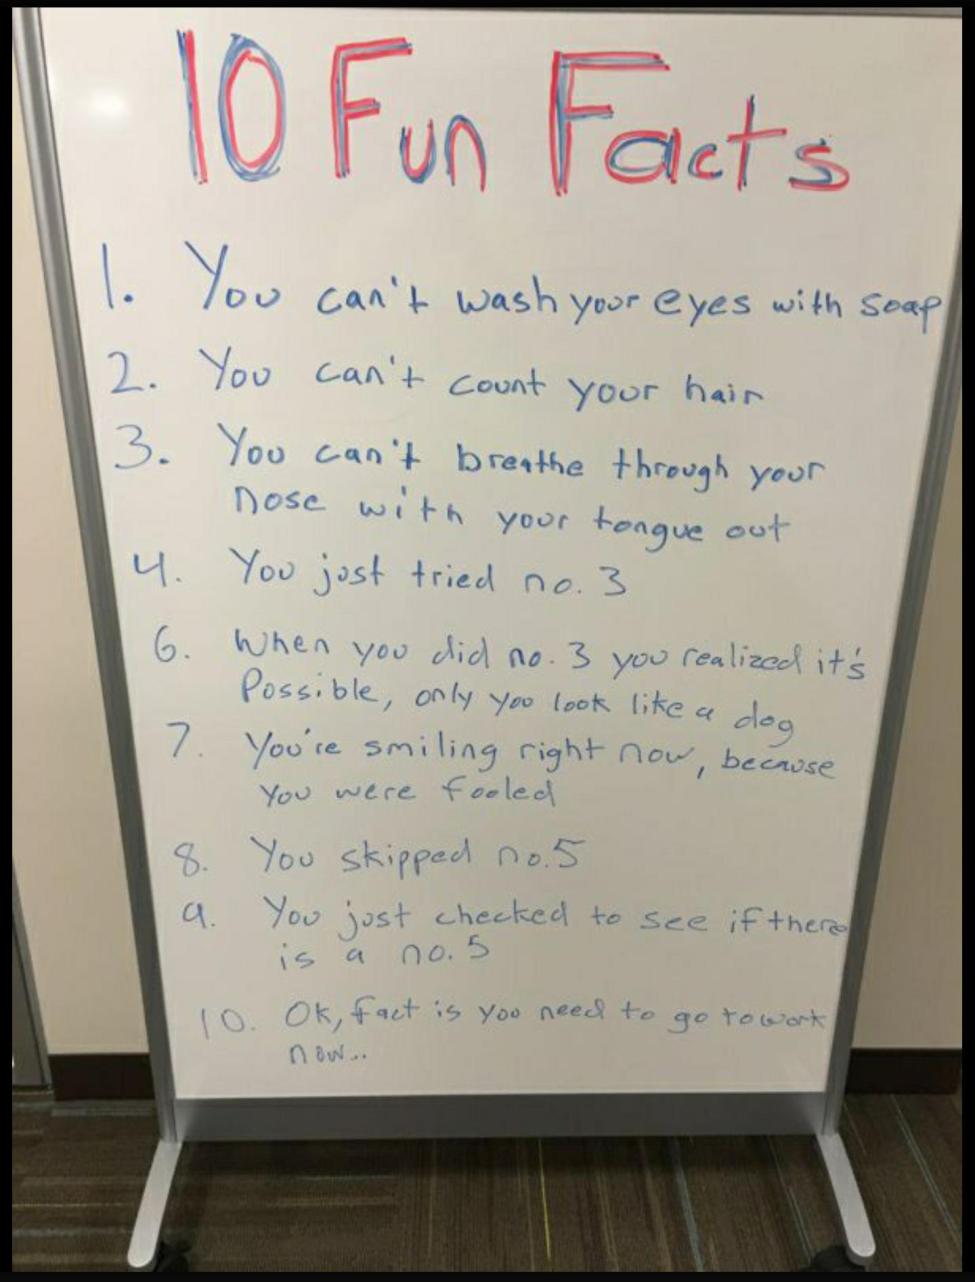 10 Fun Facts
1. You can't wash your eyes with soap
2. You can't count your hair
3. You can't breathe through your
nose with your tongue out
4. You just tried no. 3
6. When you did no. 3 you realized it's
Possible, only you look like a dog
7. You're smiling right now, because
you were fooled
8. You skipped no. 5
9. You just checked to see if there
is a no. 5
10. Ok, fact is you need to go to work
now...